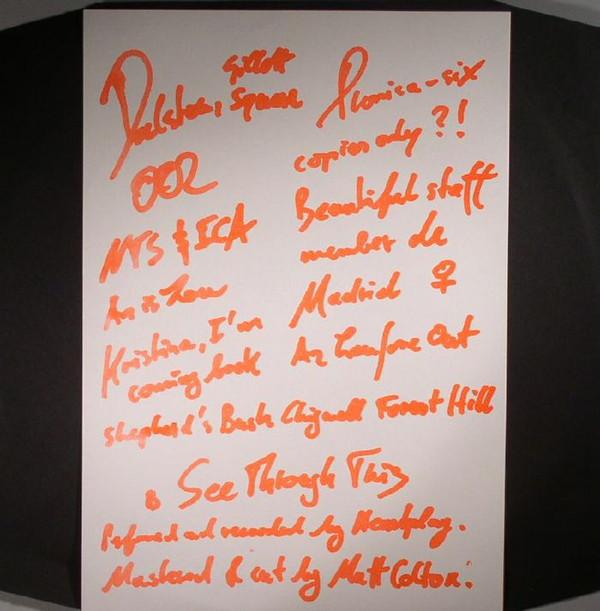 Gillett
Dalston, Square
002
MTS & ICA
An is
Kristina, I'm
coming back
Monica - six
copies only ?!
Beautiful staff
member de
Madrid ♀
An Out
Shepherd's Bush Chigwell Forest Hill
& See Through This
Performed and recorded by
Mastered & cut by Matt Colton.